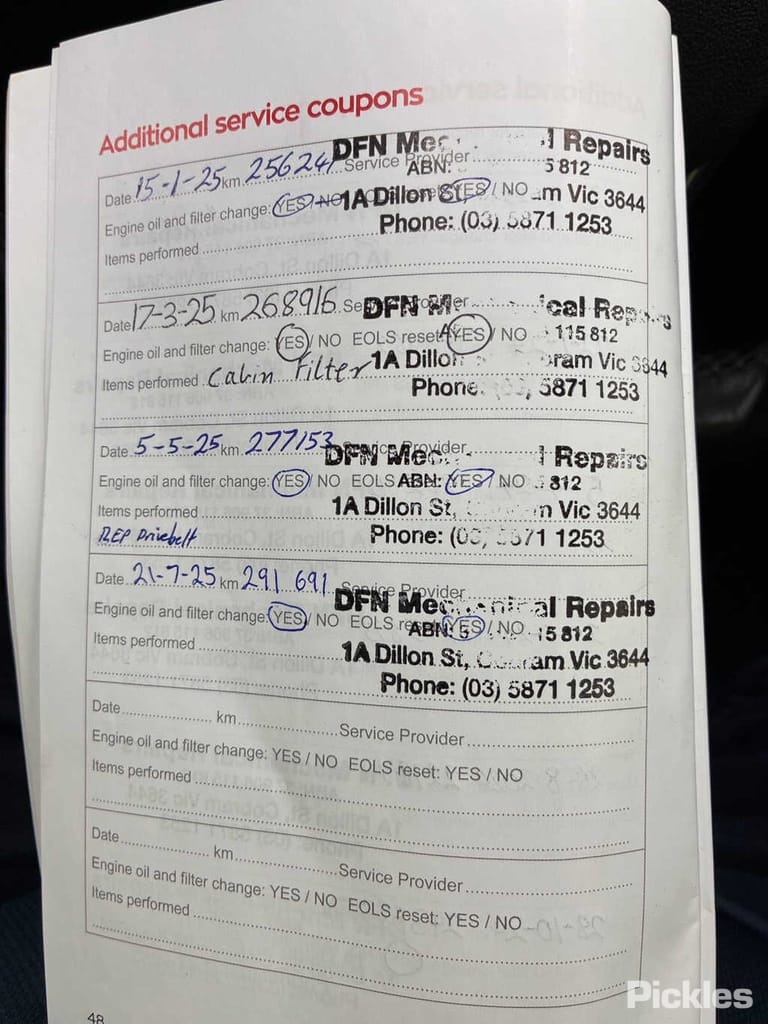 Additional service coupons
DFN Mec al Repairs
Date 15-1-25 km 256241 Service Provider
ABN: 5 812
Engine oil and filter change: YES NO YES / NO
1A Dillon St, m Vic 3644
Phone: (03) 5871 1253
Items performed
DFN M ical Repairs
Date 17-3-25 km 268916
Engine oil and filter change: YES / NO EOLS reset: YES / NO 115 812
Items performed Cabin Filter
1A Dillon ram Vic 3644
Phone: 5871 1253
Date 5-5-25 km 277153 Service Provider
DFN Mec l Repairs
Engine oil and filter change: YES / NO EOLS ABN: YES / NO 812
Items performed
1A Dillon St, m Vic 3644
REP Drivebelt
Phone: (03) 5871 1253
Date 21-7-25 km 291 691 Service Provider
DFN Mechanical Repairs
Engine oil and filter change: YES / NO EOLS reset: YES / NO
ABN: 15 812
Items performed
1A Dillon St, Cobram Vic 3644
Phone: (03) 5871 1253
Date km Service Provider
Engine oil and filter change: YES / NO EOLS reset: YES / NO
Items performed
Date km Service Provider
Engine oil and filter change: YES / NO EOLS reset: YES / NO
Items performed
48
Pickles